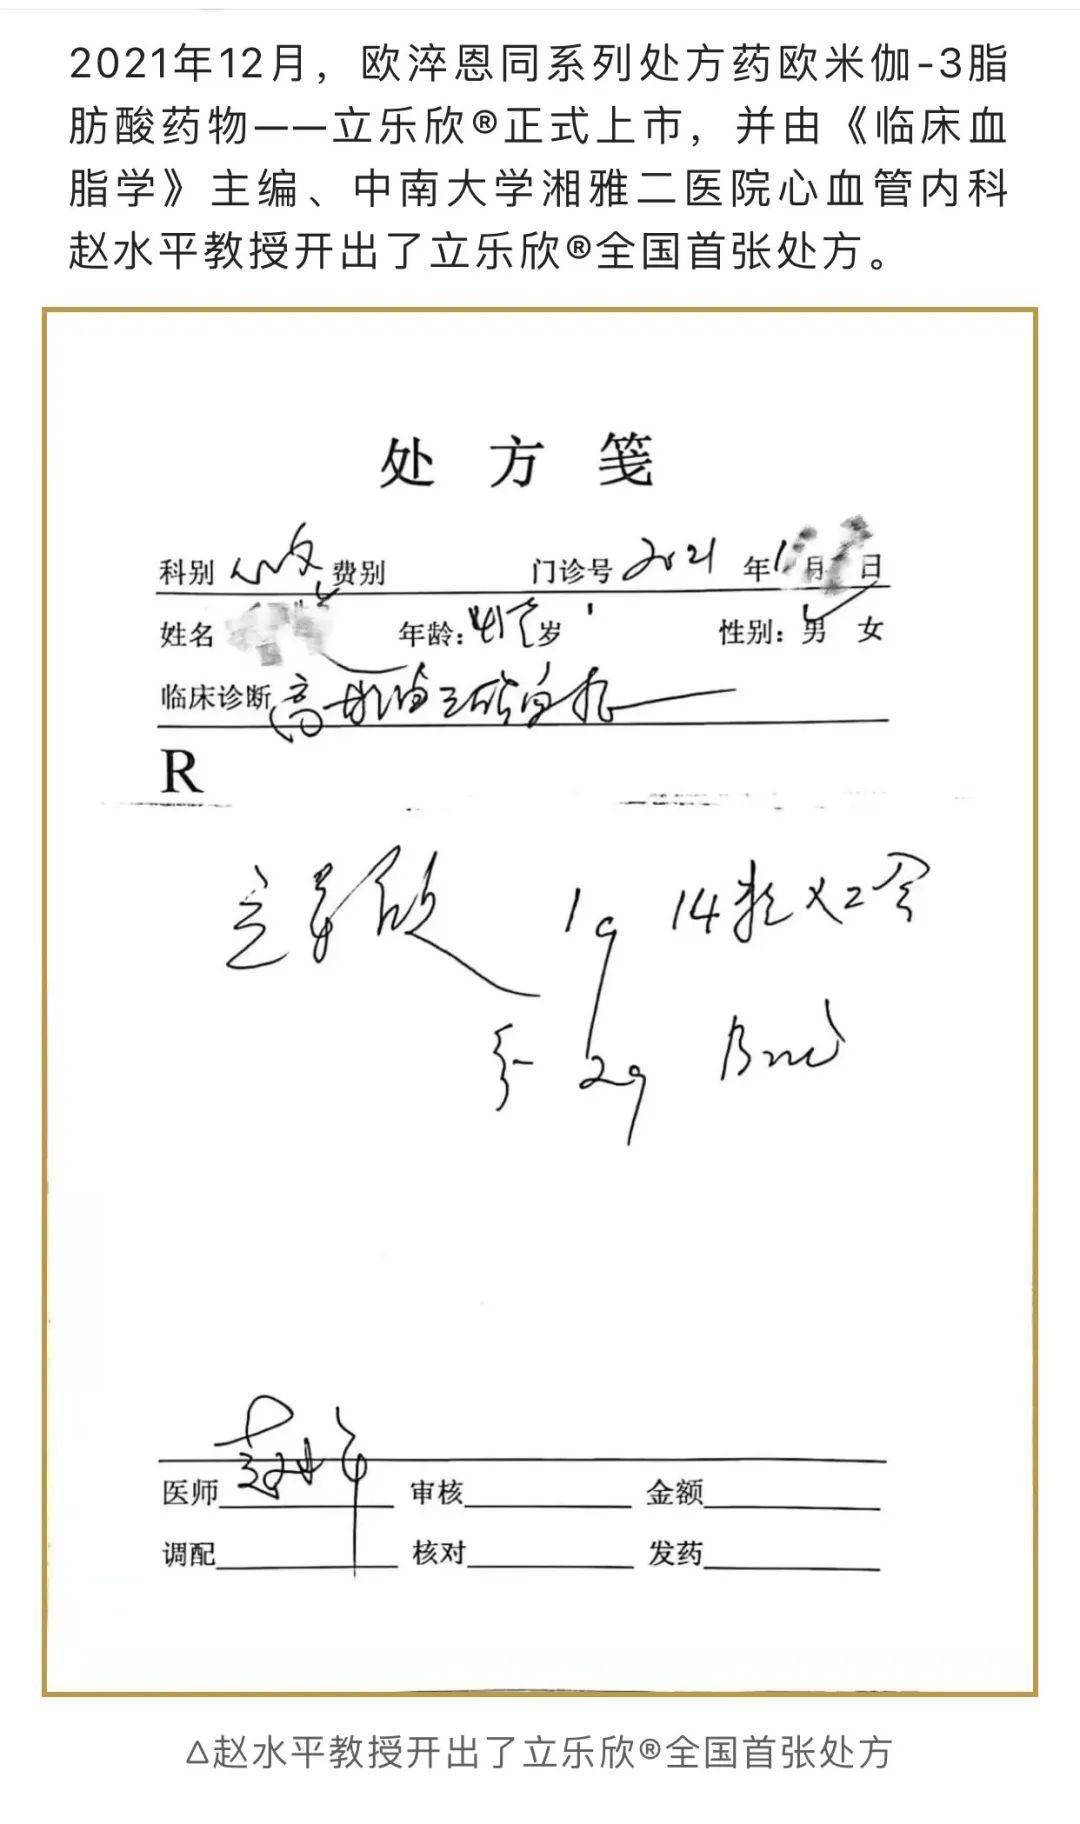 2021年12月，欧淬恩同系列处方药欧米伽-3脂
肪酸药物——立乐欣®正式上市，并由《临床血
脂学》主编、中南大学湘雅二医院心血管内科
赵水平教授开出了立乐欣®全国首张处方。
处 方 笺
科别 心内 费别 门诊号 2021 年 1 月 日
姓名 年龄: 岁 性别: 男 女
临床诊断 高甘油三酯血症
R
立乐欣 1g 14粒 x2盒
2g Bid
医师 赵水平 审核 金额
调配 核对 发药
△赵水平教授开出了立乐欣®全国首张处方